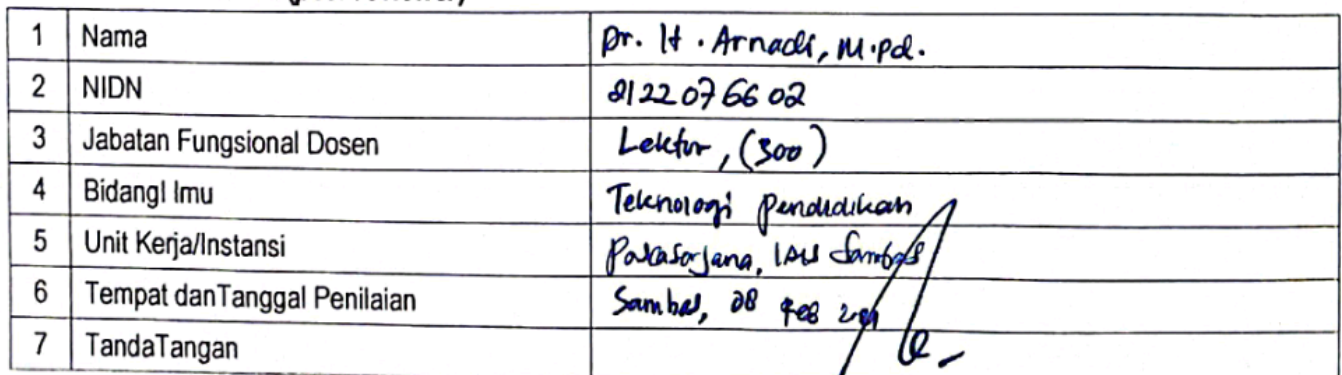 1 Nama Dr. H. Arnadi, M.Pd.
2 NIDN 2122076602
3 Jabatan Fungsional Dosen Lektor, (300)
4 Bidangl lmu Teknologi Pendidikan
5 Unit Kerja/Instansi Pascasarjana, IAIS Sambas
6 Tempat danTanggal Penilaian Sambas, 08 Feb
7 TandaTangan